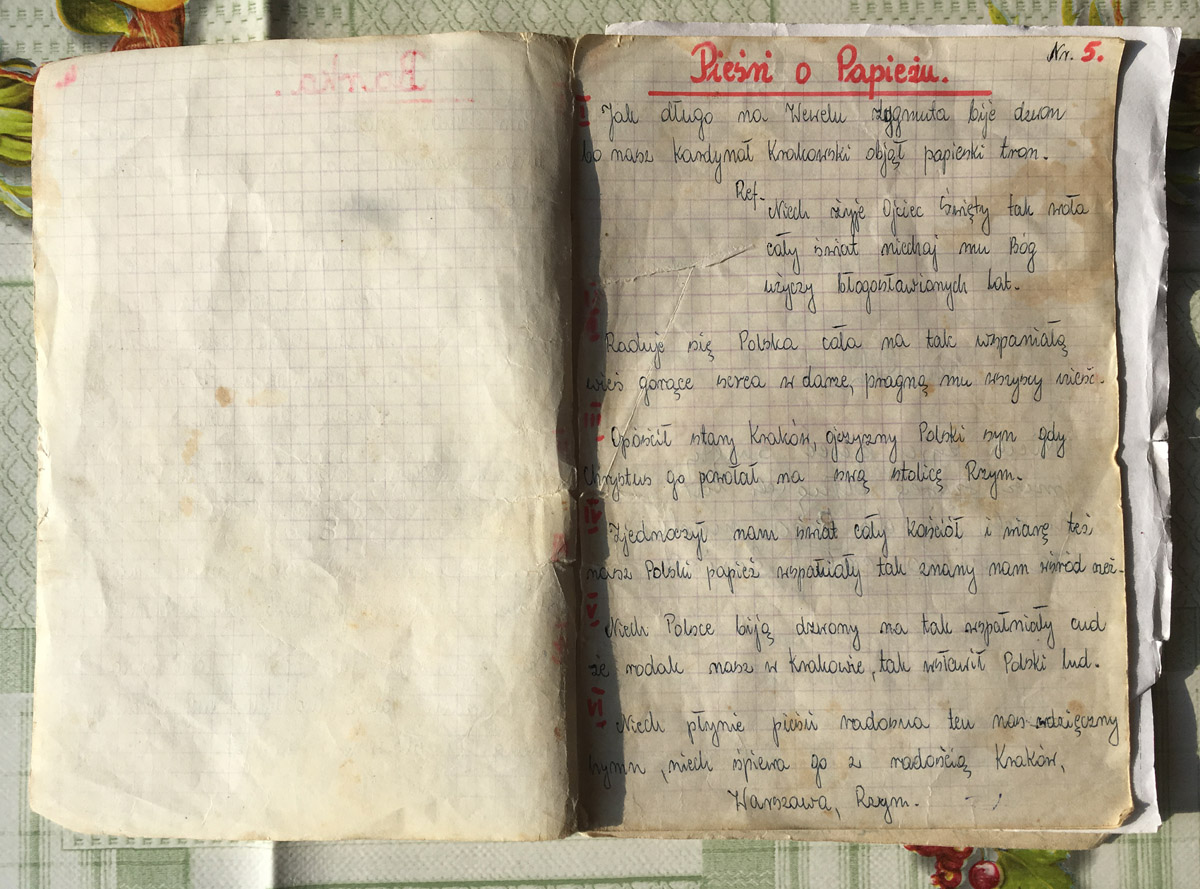 Barka.
Nr. 5.
Pieśń o Papieżu.
I Jak długo na Wewelu zygmuta bije dzwon
bo nasz Kardynał Krakowski objął papieski tron.
Ref. Niech żyje Ojciec Święty tak woła
cały świat niechaj mu Bóg
użyczy błogosławionych lat.
II Raduje się Polska cała na tak wspaniałą
wieś gorące serca w darze, pragną mu wszyscy nieść.
III Opóścił stary Kraków, ojczyzny Polski syn gdy
Chrystus go powołał na swą stolicę Rzym.
IV Zjednoczył nam świat cały kościół i wiarę też
nasz Polski papież wspałniały tak znany nam wśród
V Niech Polsce biją dzwony na tak wspałniały cud
że rodak nasz w Krakowie, tak wsławił Polski lud.
VI Niech płynie pieśń radosna ten nasz wdzięczny
hymn, niech śpiewa go z radością Kraków,
Warszawa, Rzym.